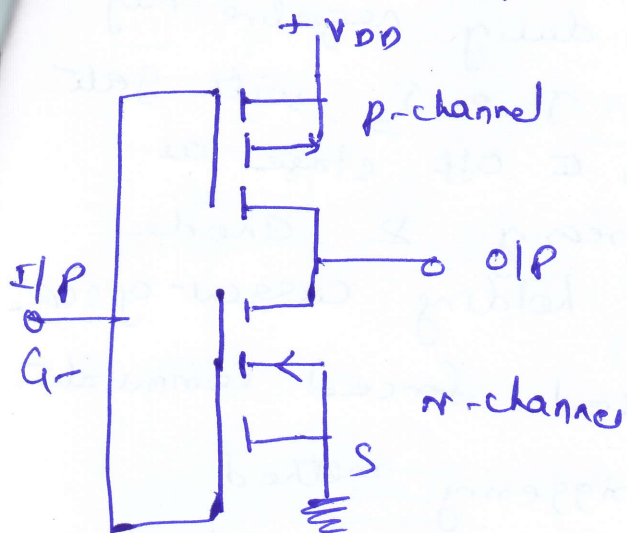 + VDD
p-channel
I/P
O/P
G
n-channel
S